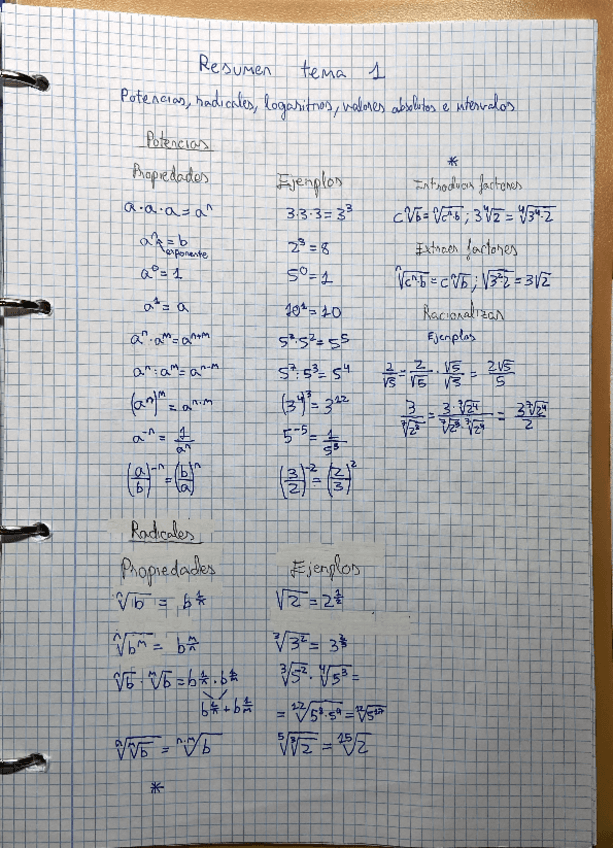 Resumen tema 1
Potencias, radicales, logaritmos, valores absolutos e intervalos
Potencias
Propiedades
a·a·a=aⁿ
aⁿ=b
exponente
a⁰=1
a¹=a
aⁿ·aᵐ=aⁿ⁺ᵐ
aⁿ:aᵐ=aⁿ⁻ᵐ
(aⁿ)ᵐ=aⁿ·ᵐ
a⁻ⁿ=1/aⁿ
(a/b)⁻ⁿ=(b/a)ⁿ
Ejemplos
3·3·3=3³
2³=8
5⁰=1
10¹=10
5²·5²=5⁵
5⁷:5³=5⁴
(3⁴)³=3¹²
5⁻⁵=1/5⁵
(3/2)⁻²=(2/3)²
*
Introducir factores
cⁿ√b=ⁿ√(cⁿ·b); 3⁴√2=⁴√(3⁴·2)
Extraer factores
ⁿ√(cⁿ·b)=cⁿ√b; √(3²·2)=3√2
Racionalizar
Ejemplos
2/√5=2/√5·√5/√5=2√5/5
Radicales
Propiedades
ⁿ√b=b^(1/n)
ⁿ√bᵐ=b^(m/n)
ⁿ√b·ᵐ√b=b^(1/n)·b^(1/m)
b^(1/n)+b^(1/m)
ⁿ√(ᵐ√b)=ⁿ·ᵐ√b
*
Ejemplos
√2=2^(1/2)
³√3²=3^(2/3)
³√5²·⁴√5³=
=¹²√(5⁸·5⁹)=¹²√5¹⁷
⁵√(³√2)=¹⁵√2